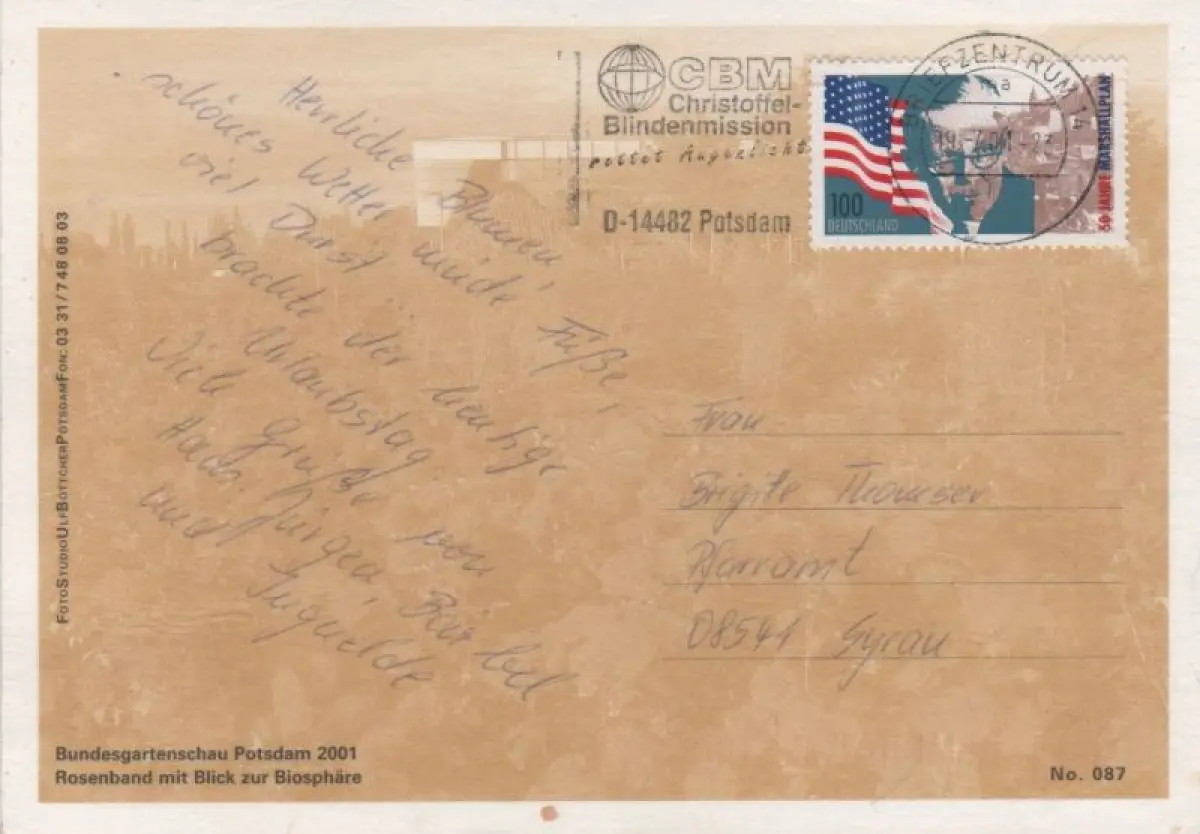 Herrliche Blumen,
schönes Wetter, müde Füße,
viel Durst
brachte der heutige
Urlaubstag.
Viele Grüße von
Hans-Jürgen, Bärbel
und
CBM
Christoffel-
Blindenmission
rettet Augenlicht
D-14482 Potsdam
BRIEFZENTRUM 14
ma
19.-7.01-23
100
DEUTSCHLAND
50 JAHRE MARSHALLPLAN
Frau
Brigitte
Pfarramt
08541 Syrau
FOTOSTUDIOULFBÖTTCHERPOTSDAMFON: 03 31/7 48 08 03
Bundesgartenschau Potsdam 2001
Rosenband mit Blick zur Biosphäre
No. 087